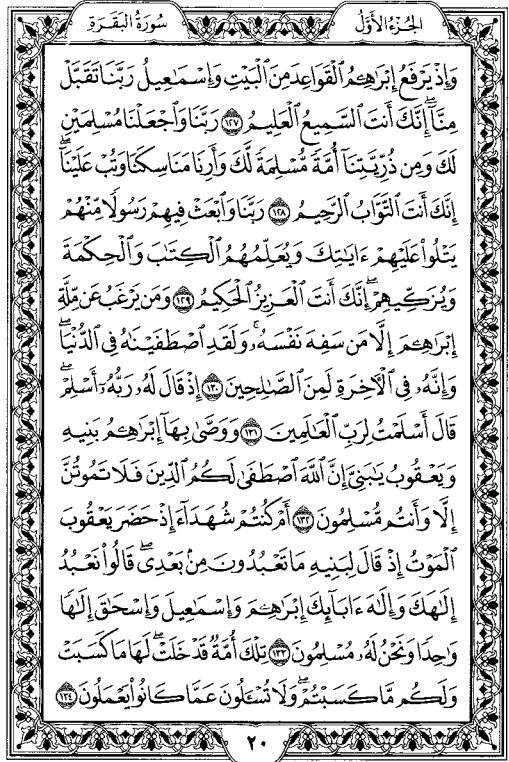 الجزء الأول
سورة البقرة
وَإِذْ يَرْفَعُ إِبْرَٰهِـۧمُ ٱلْقَوَاعِدَ مِنَ ٱلْبَيْتِ وَإِسْمَـٰعِيلُ رَبَّنَا تَقَبَّلْ
مِنَّآ ۖ إِنَّكَ أَنتَ ٱلسَّمِيعُ ٱلْعَلِيمُ ١٢٧ رَبَّنَا وَٱجْعَلْنَا مُسْلِمَيْنِ
لَكَ وَمِن ذُرِّيَّتِنَآ أُمَّةً مُّسْلِمَةً لَّكَ وَأَرِنَا مَنَاسِكَنَا وَتُبْ عَلَيْنَآ ۖ
إِنَّكَ أَنتَ ٱلتَّوَّابُ ٱلرَّحِيمُ ١٢٨ رَبَّنَا وَٱبْعَثْ فِيهِمْ رَسُولًا مِّنْهُمْ
يَتْلُوا۟ عَلَيْهِمْ ءَايَـٰتِكَ وَيُعَلِّمُهُمُ ٱلْكِتَـٰبَ وَٱلْحِكْمَةَ
وَيُزَكِّيهِمْ ۚ إِنَّكَ أَنتَ ٱلْعَزِيزُ ٱلْحَكِيمُ ١٢٩ وَمَن يَرْغَبُ عَن مِّلَّةِ
إِبْرَٰهِـۧمَ إِلَّا مَن سَفِهَ نَفْسَهُۥ ۚ وَلَقَدِ ٱصْطَفَيْنَـٰهُ فِى ٱلدُّنْيَا ۖ
وَإِنَّهُۥ فِى ٱلْـَٔاخِرَةِ لَمِنَ ٱلصَّـٰلِحِينَ ١٣٠ إِذْ قَالَ لَهُۥ رَبُّهُۥٓ أَسْلِمْ ۖ
قَالَ أَسْلَمْتُ لِرَبِّ ٱلْعَـٰلَمِينَ ١٣١ وَوَصَّىٰ بِهَآ إِبْرَٰهِـۧمُ بَنِيهِ
وَيَعْقُوبُ يَـٰبَنِىَّ إِنَّ ٱللَّهَ ٱصْطَفَىٰ لَكُمُ ٱلدِّينَ فَلَا تَمُوتُنَّ
إِلَّا وَأَنتُم مُّسْلِمُونَ ١٣٢ أَمْ كُنتُمْ شُهَدَآءَ إِذْ حَضَرَ يَعْقُوبَ
ٱلْمَوْتُ إِذْ قَالَ لِبَنِيهِ مَا تَعْبُدُونَ مِنۢ بَعْدِى ۖ قَالُوا۟ نَعْبُدُ
إِلَـٰهَكَ وَإِلَـٰهَ ءَابَآئِكَ إِبْرَٰهِـۧمَ وَإِسْمَـٰعِيلَ وَإِسْحَـٰقَ إِلَـٰهًا
وَٰحِدًا وَنَحْنُ لَهُۥ مُسْلِمُونَ ١٣٣ تِلْكَ أُمَّةٌ قَدْ خَلَتْ ۖ لَهَا مَا كَسَبَتْ
وَلَكُم مَّا كَسَبْتُمْ ۖ وَلَا تُسْـَٔلُونَ عَمَّا كَانُوا۟ يَعْمَلُونَ ١٣٤
٢٠